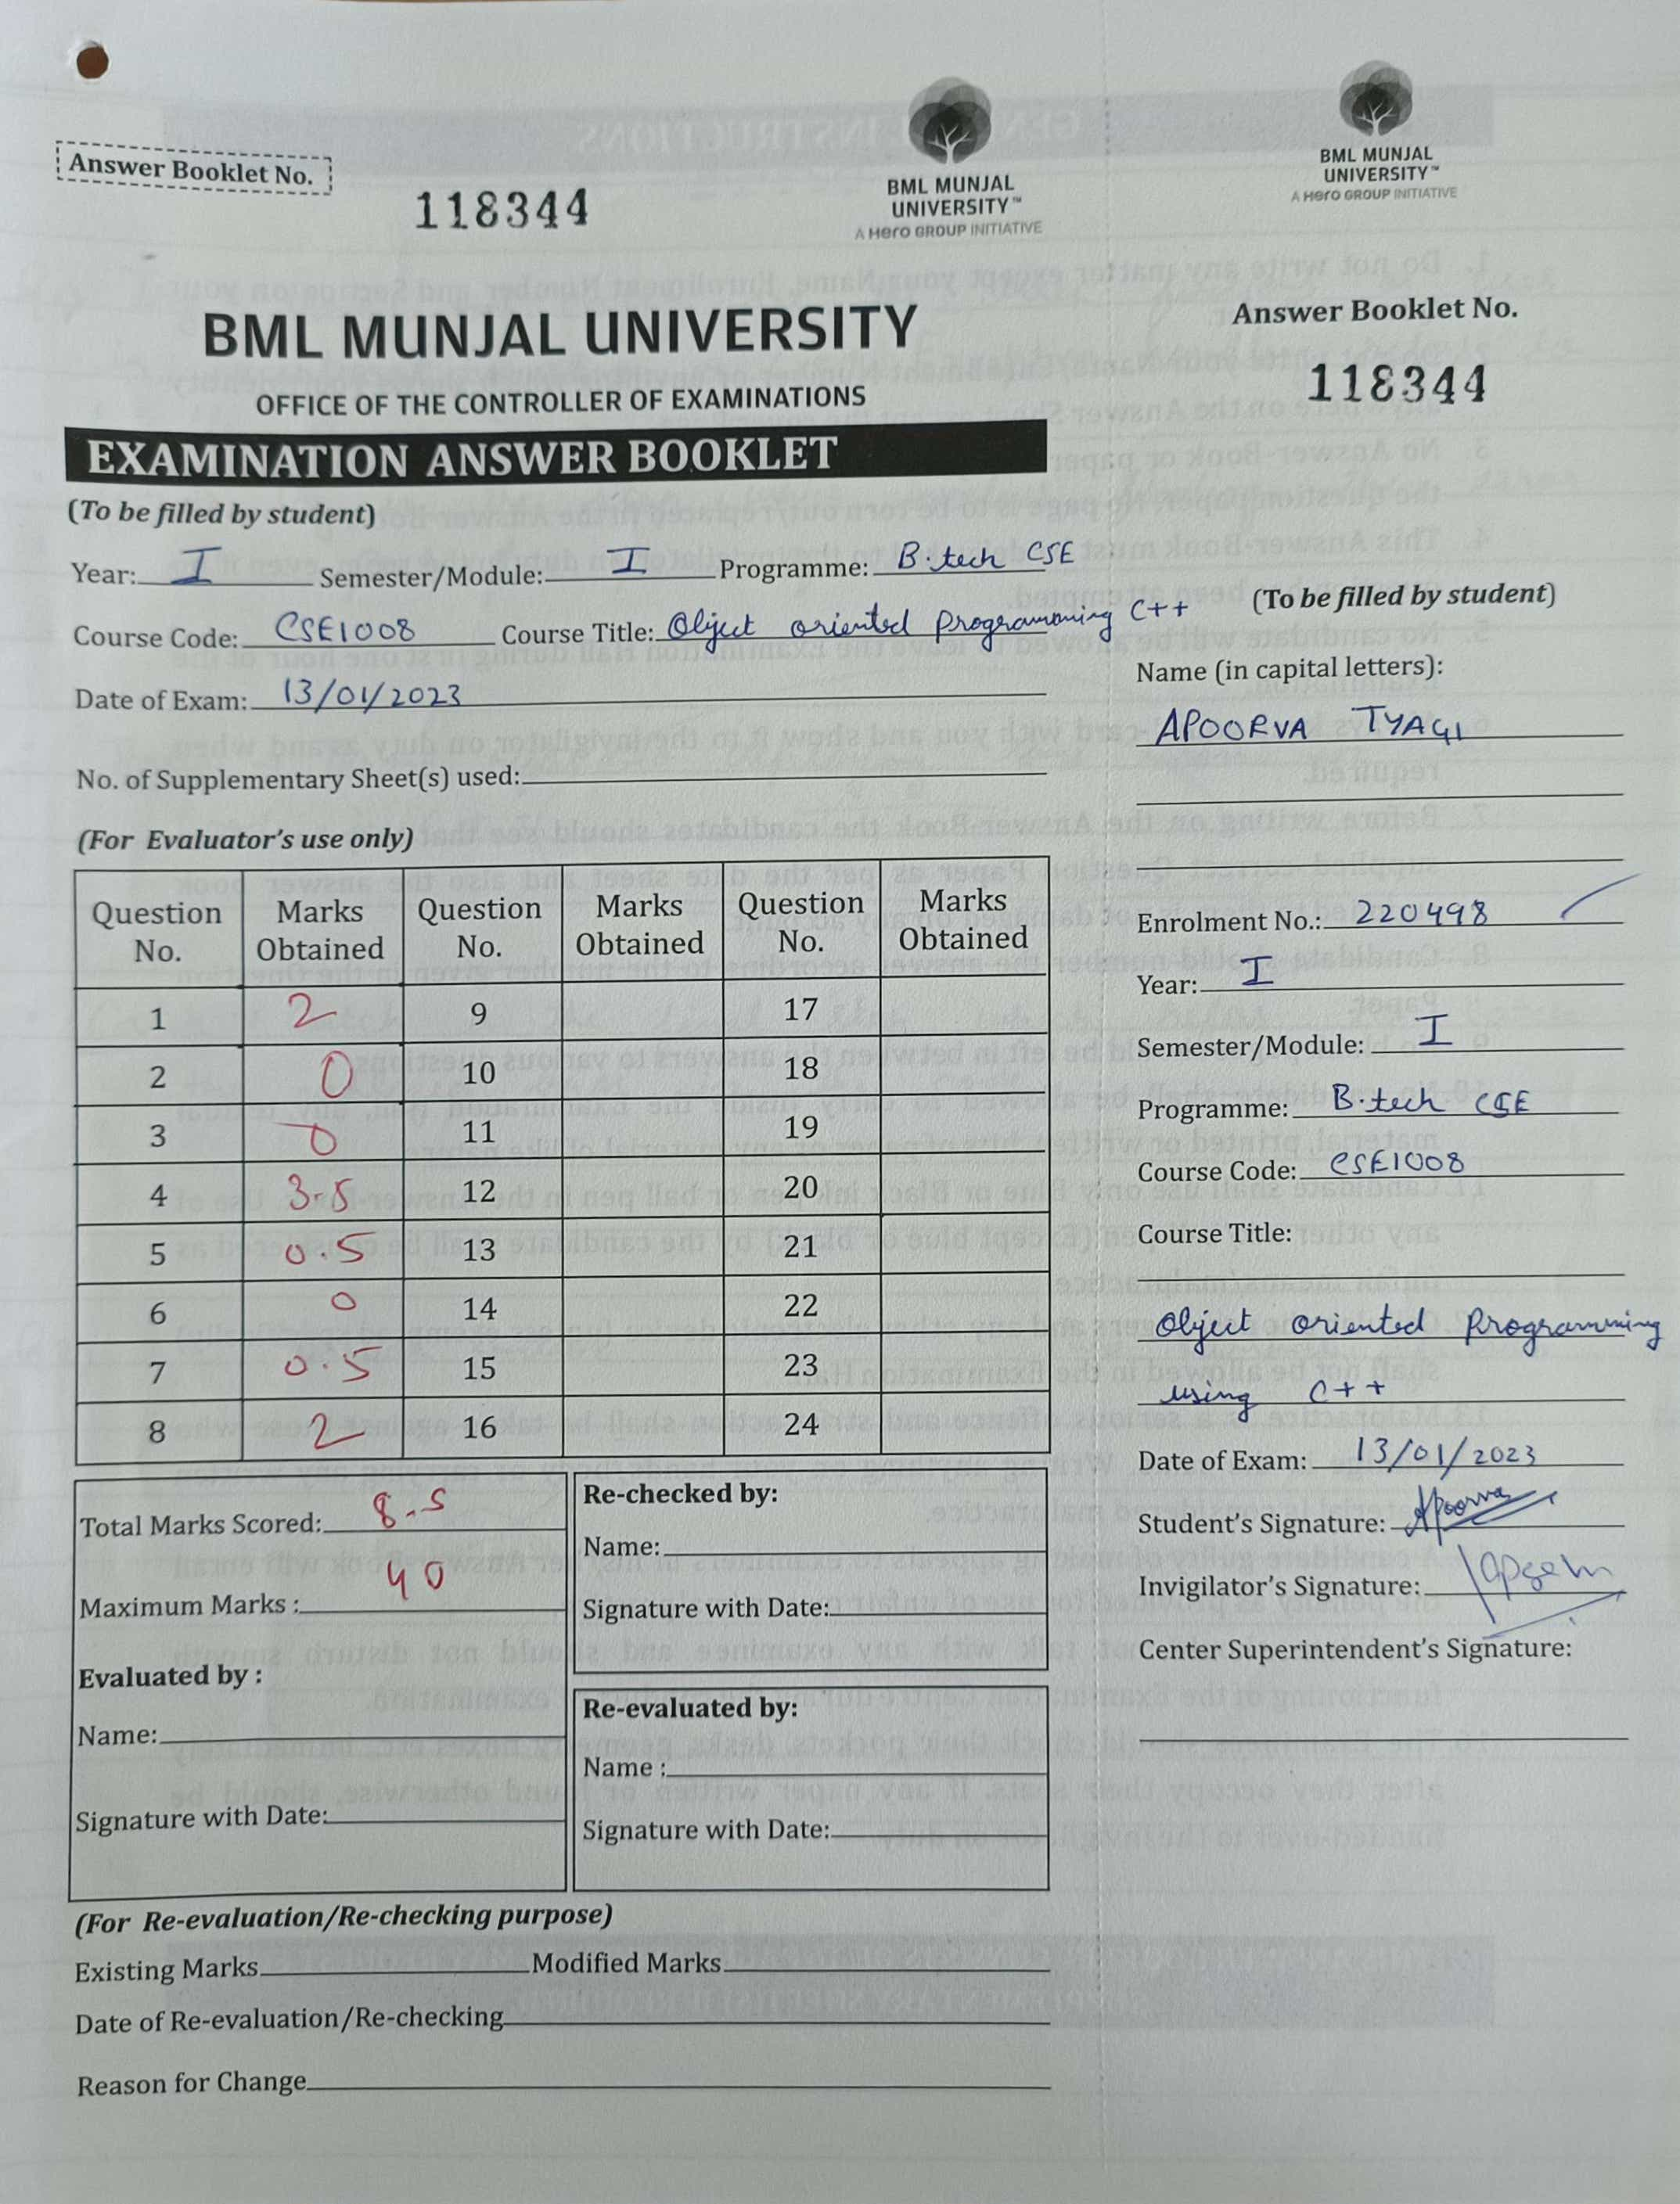 Answer Booklet No.
118344
BML MUNJAL
UNIVERSITY™
A Hero GROUP INITIATIVE
BML MUNJAL UNIVERSITY
OFFICE OF THE CONTROLLER OF EXAMINATIONS
EXAMINATION ANSWER BOOKLET
(To be filled by student)
Year: I Semester/Module: I Programme: B.tech CSE
Course Code: CSE1008 Course Title: Object oriented Programming C++
Date of Exam: 13/01/2023
No. of Supplementary Sheet(s) used:
(For Evaluator's use only)
Question No. Marks Obtained Question No. Marks Obtained Question No. Marks Obtained
1 2 9 17
2 0 10 18
3 0 11 19
4 3.5 12 20
5 0.5 13 21
6 0 14 22
7 0.5 15 23
8 2 16 24
Total Marks Scored: 8.5
Maximum Marks : 40
Evaluated by :
Name:
Signature with Date:
Re-checked by:
Name:
Signature with Date:
Re-evaluated by:
Name :
Signature with Date:
(For Re-evaluation/Re-checking purpose)
Existing Marks Modified Marks
Date of Re-evaluation/Re-checking
Reason for Change
BML MUNJAL
UNIVERSITY™
A Hero GROUP INITIATIVE
Answer Booklet No.
118344
(To be filled by student)
Name (in capital letters):
APOORVA TYAGI
Enrolment No.: 220498
Year: I
Semester/Module: I
Programme: B.tech CSE
Course Code: CSE1008
Course Title:
Object oriented Programming
using C++
Date of Exam: 13/01/2023
Student's Signature: Apoorva
Invigilator's Signature:
Center Superintendent's Signature: